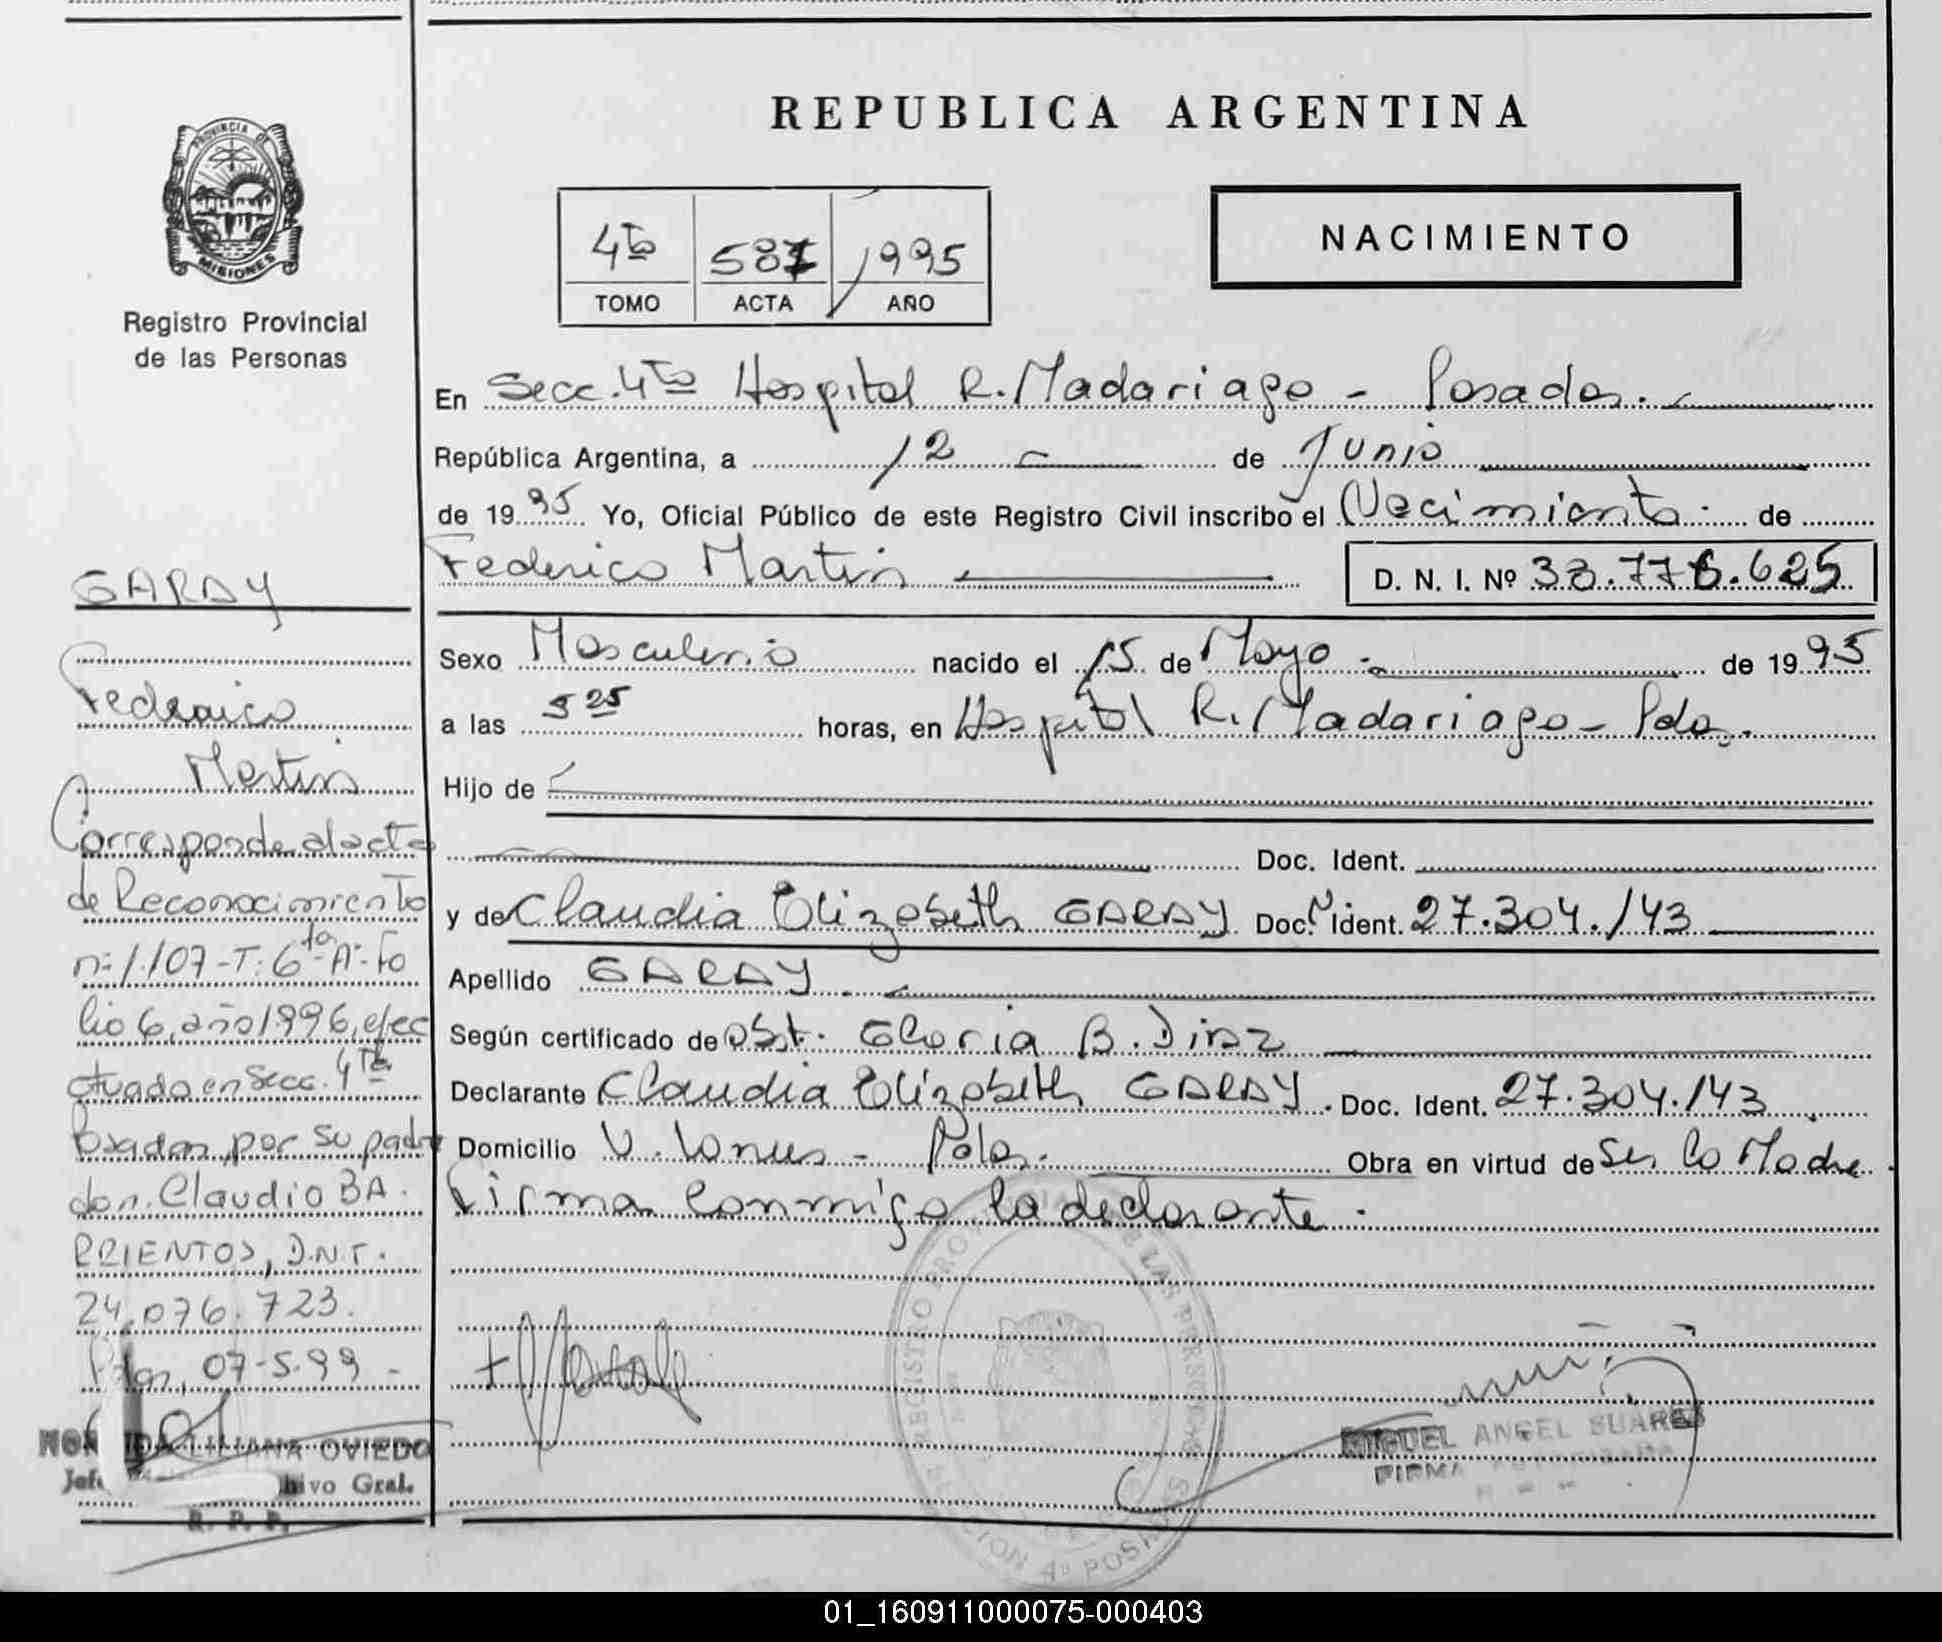 REPUBLICA ARGENTINA
PROVINCIA DE
MISIONES
Registro Provincial
de las Personas
4to 587 1995
TOMO ACTA AÑO
NACIMIENTO
En Secc. 4to Hospital R. Madariaga - Posadas.
República Argentina, a 12 de Junio
de 1995 Yo, Oficial Público de este Registro Civil inscribo el Nacimiento de
Federico Martin D. N. I. Nº 38.776.625
Sexo Masculino nacido el 15 de Mayo de 1995
a las 5 25 horas, en Hospital R. Madariaga - Pdas.
Hijo de
Doc. Ident.
y de Claudia Elizabeth GARAY Doc. Ident. 27.304.143
Apellido GARAY
Según certificado de Obst. Gloria B. Diaz
Declarante Claudia Elizabeth GARAY. Doc. Ident. 27.304.143
Domicilio V. Lanus - Pdas. Obra en virtud de Ser la Madre.
Firma conmigo la declarante.
GARAY
Federico
Martin
Corresponde al acta
de Reconocimiento
nº 1.107-T: 6ta-A-Fo
lio 6, año 1996, efec
tuado en Secc. 4ta
Posadas, por su padre
don. Claudio BA
RRIENTOS, D.N.I.
24.076.723.
Pdas, 07-5-99 -
LILIANA OVIEDO
Jefe hivo Gral.
R. P. P.
REGISTRO PROVINCIAL DE LAS PERSONAS
4º POSADAS
MIGUEL ANGEL SUAREZ
FIRMA AUTORIZADA
01_160911000075-000403